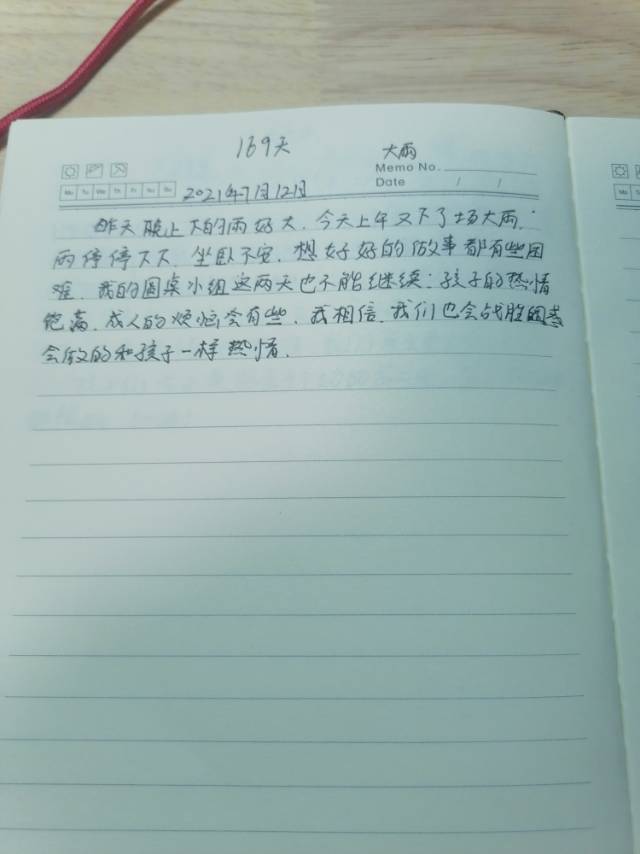 169天
大雨
Memo No.
Mo Tu We Th Fr Sa Su
2021年7月12日
Date / /
昨天晚上下的雨好大,今天上午又下了场大雨,
雨停停下下,坐卧不安,想好好的做事都有些困
难,我的圆桌小组这两天也不能继续;孩子的热情
饱满,成人的烦恼会有些,我相信,我们也会战胜困难
会做的和孩子一样热情.